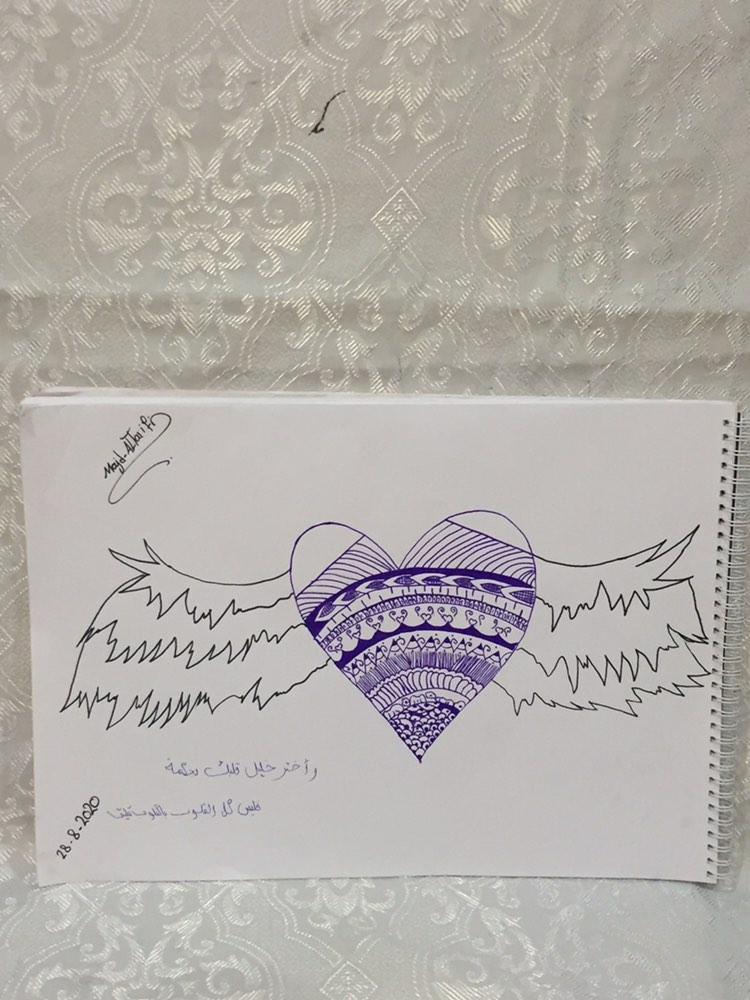 Majd-Altaifi
وأختر خليل قلبك بحكمة
فليس كل القلوب بالقلوب تليق
28-8-2020